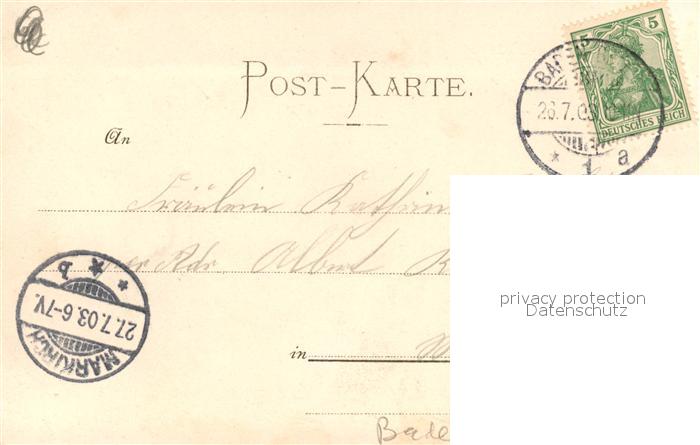 5 5
DEUTSCHES REICH
BADEN
26.7.03
* 1 a
POST-KARTE.
An
Fräulein Kathrin
Adr. Albert
b
27.7.03.6-7V.
MARKIRCH
in
privacy protection
Datenschutz
Bade